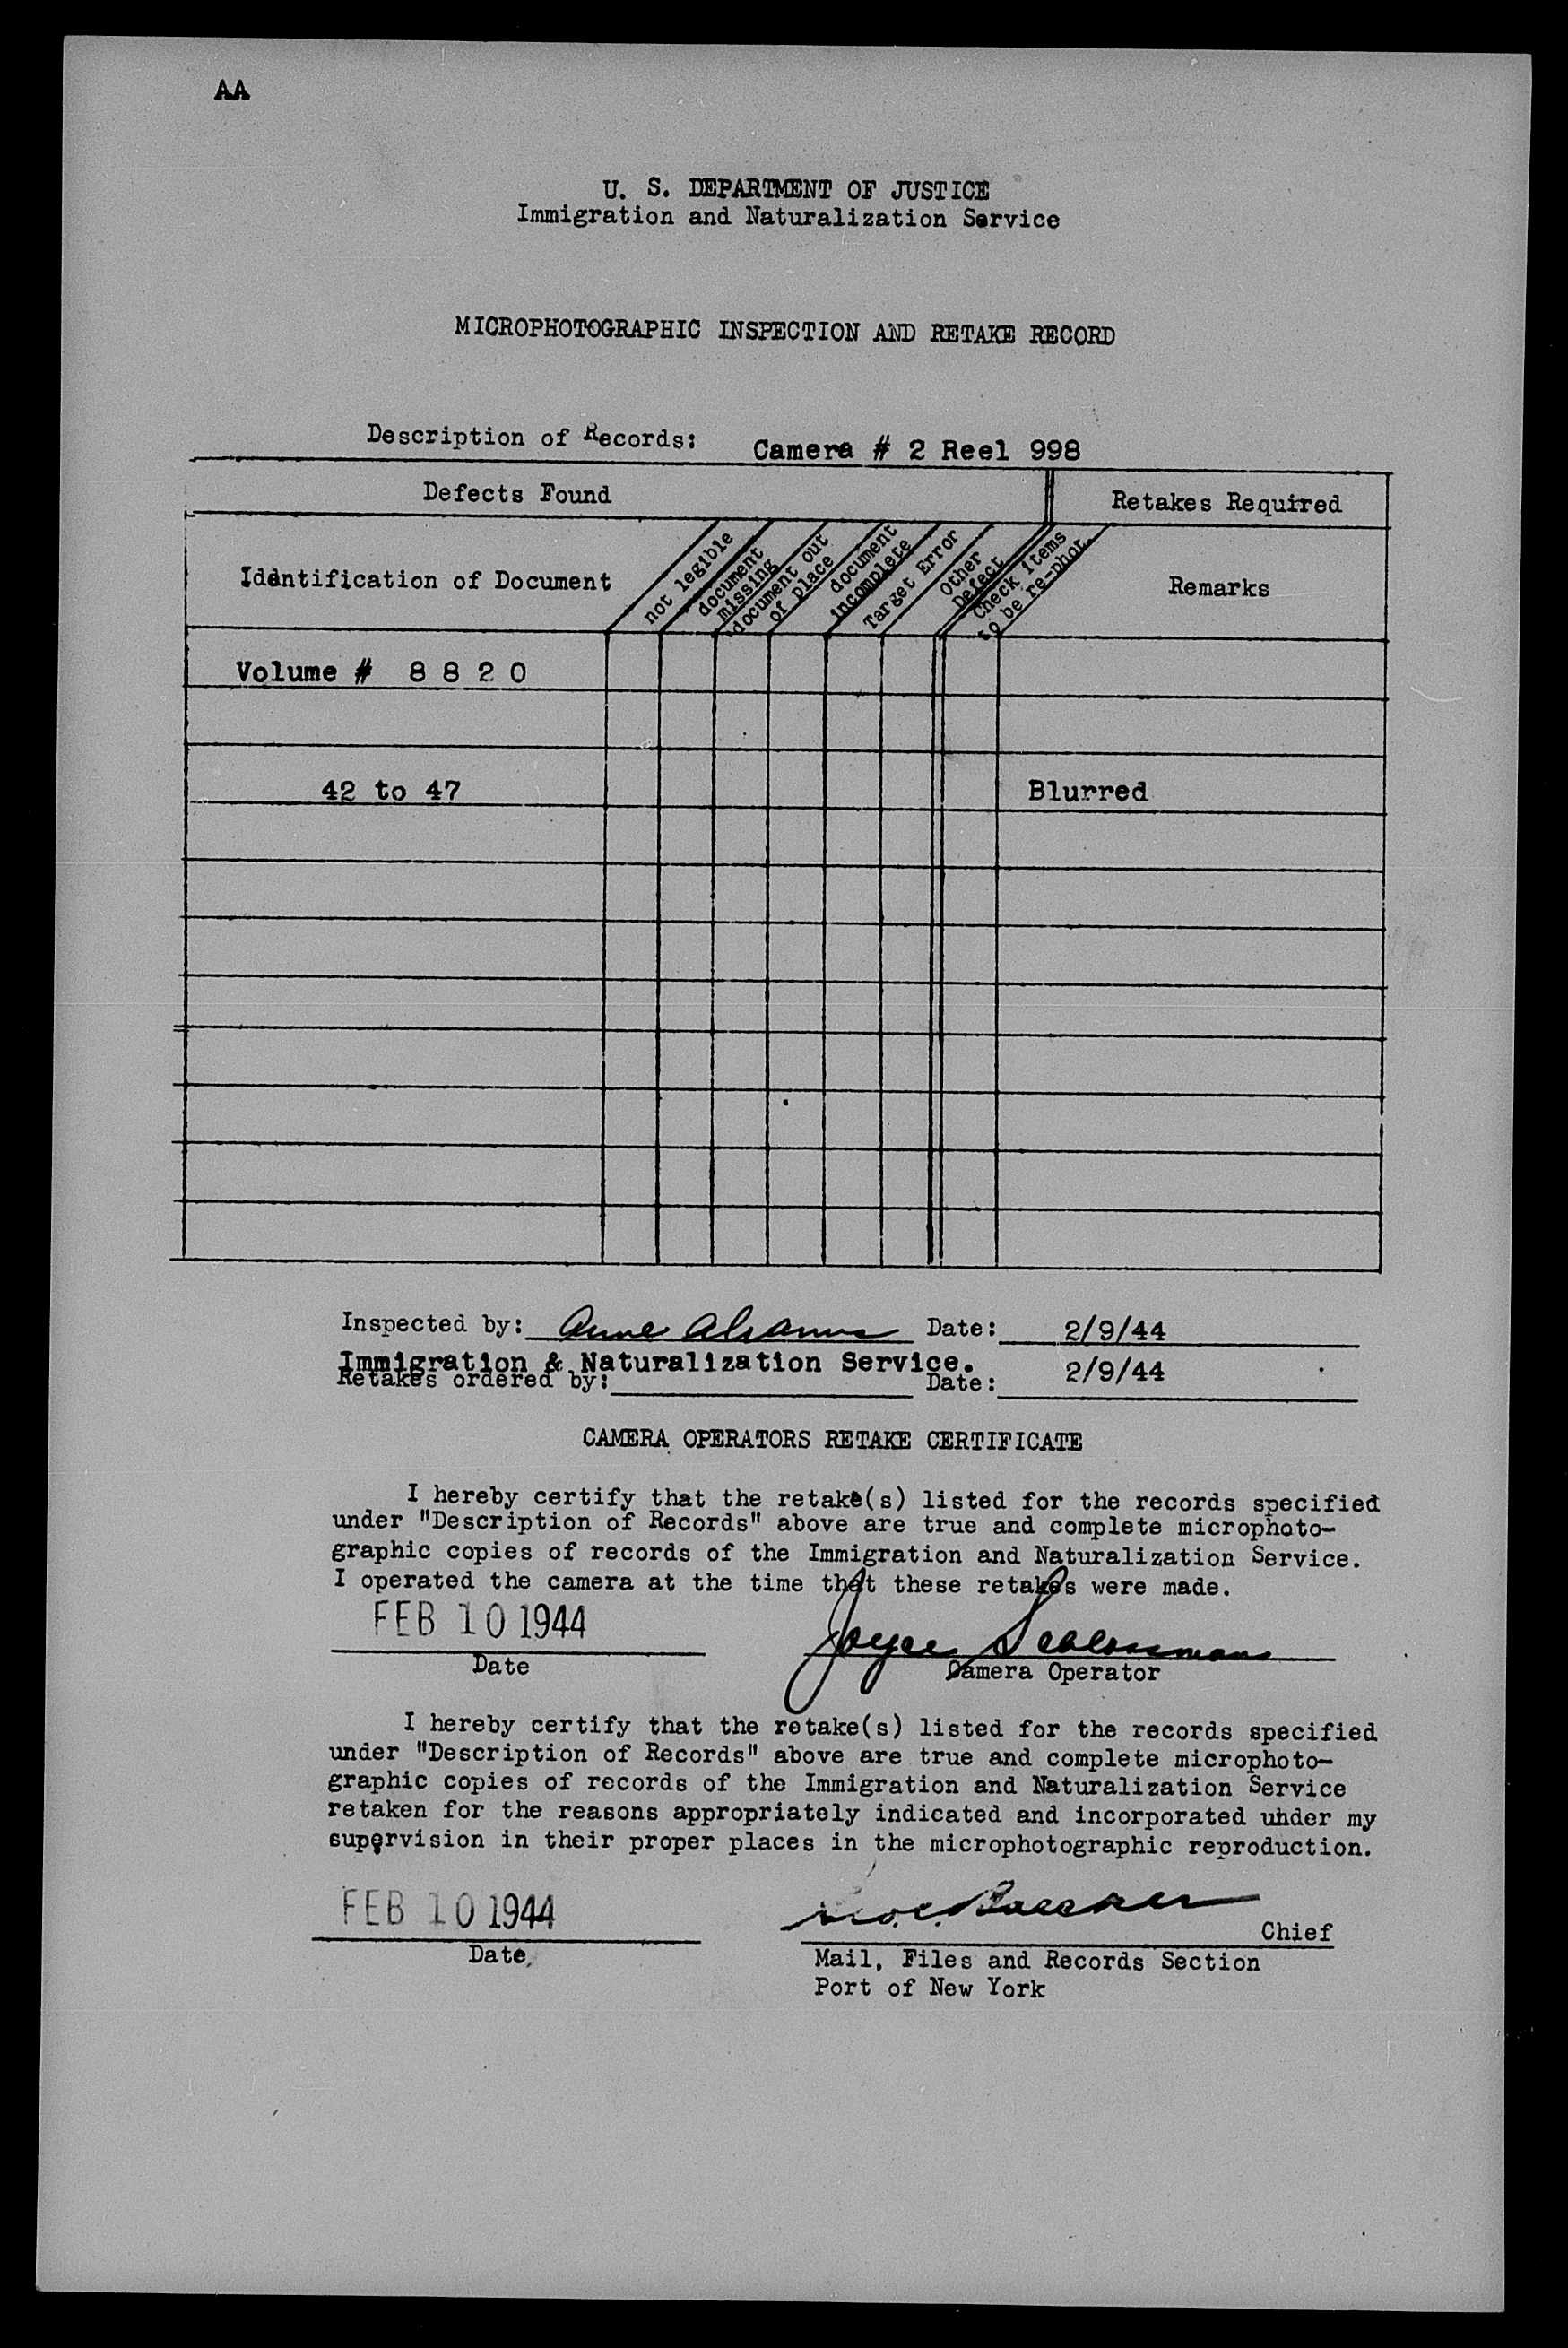 AA
U. S. DEPARTMENT OF JUSTICE
Immigration and Naturalization Service
MICROPHOTOGRAPHIC INSPECTION AND RETAKE RECORD
Description of Records: Camera # 2 Reel 998
Defects Found
Retakes Required
Identification of Document
not legible
document missing
document out of place
document incomplete
Target Error
Other Defect
Check items to be re-phot.
Remarks
Volume # 8 8 2 0
42 to 47 Blurred
Inspected by: Anne Date: 2/9/44
Immigration & Naturalization Service. 2/9/44
Retakes ordered by: Date:
CAMERA OPERATORS RETAKE CERTIFICATE
I hereby certify that the retake(s) listed for the records specified
under "Description of Records" above are true and complete microphoto-
graphic copies of records of the Immigration and Naturalization Service.
I operated the camera at the time that these retakes were made.
FEB 10 1944 Joyce
Date Camera Operator
I hereby certify that the retake(s) listed for the records specified
under "Description of Records" above are true and complete microphoto-
graphic copies of records of the Immigration and Naturalization Service
retaken for the reasons appropriately indicated and incorporated under my
supervision in their proper places in the microphotographic reproduction.
FEB 10 1944
Chief
Date
Mail, Files and Records Section
Port of New York